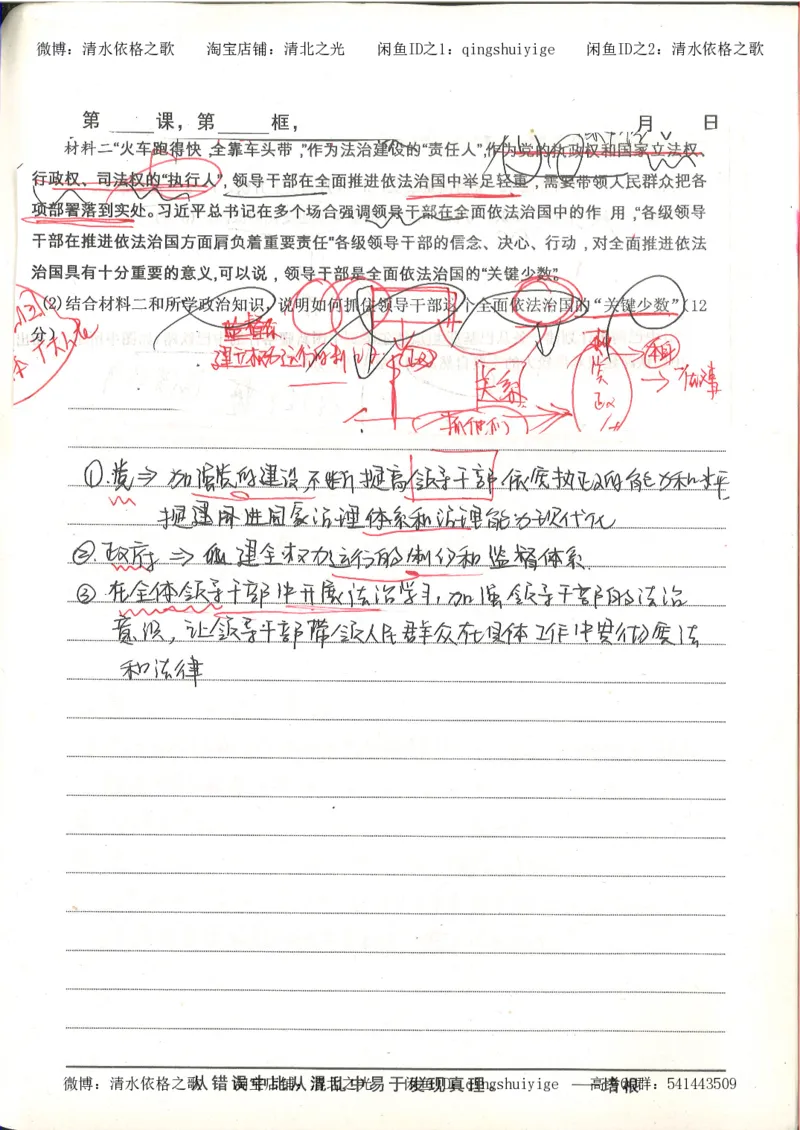 微博：清水依格之歌 淘宝店铺：清北之光 闲鱼ID之1：qingshuiyige 闲鱼ID之2：清水依格之歌
第 课，第 框， 月 日
材料二“火车跑得快，全靠车头带，”作为法治建设的“责任人”，作为党的执政权和国家立法权、
行政权、司法权的“执行人”，领导干部在全面推进依法治国中举足轻重，需要带领人民群众把各
项部署落到实处。习近平总书记在多个场合强调领导干部在全面依法治国中的作 用，“各级领导
干部在推进依法治国方面肩负着重要责任”各级领导干部的信念、决心、行动，对全面推进依法
治国具有十分重要的意义，可以说，领导干部是全面依法治国的“关键少数”。
(2)结合材料二和所学政治知识，说明如何抓住领导干部这个全面依法治国的“关键少数”(12
分)
关系
①.党⇒ 加强党的建设，不断提高领导干部依宪执政的能力和水平
提建用进国家治理体系和治理能力现代化
②.政府 ⇒ 建全权力运行的制约和监督体系.
③ 在全体领导干部中开展法治学习，加强领导干部的法治
意识，让领导干部带领人民群众在具体工作中贯彻宪法
和法律
微博：清水依格之歌 淘宝店铺：清北之光 闲鱼ID：qingshuiyige 高考QQ群：541443509
从错误中比从混乱中易于发现真理。 ——培根